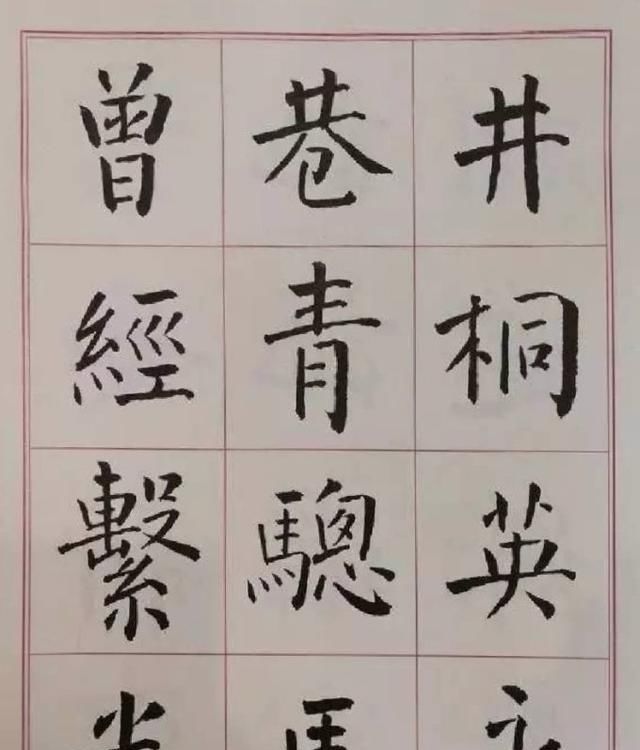 井桐英
巷青驄
曾經繫